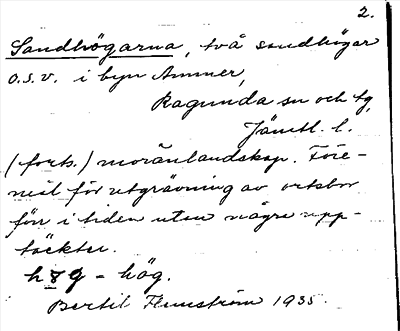 2.
Sandhögarna, två sandhögar
o.s.v. i byn Ammer,
Ragunda sn och tg,
Jämtl. l.
(forts.) moränlandskap. Före-
mål för utgrävning av ortsbor
förr i tiden utan några upp-
täckter.
hög.
Bertil Flemström 1935.